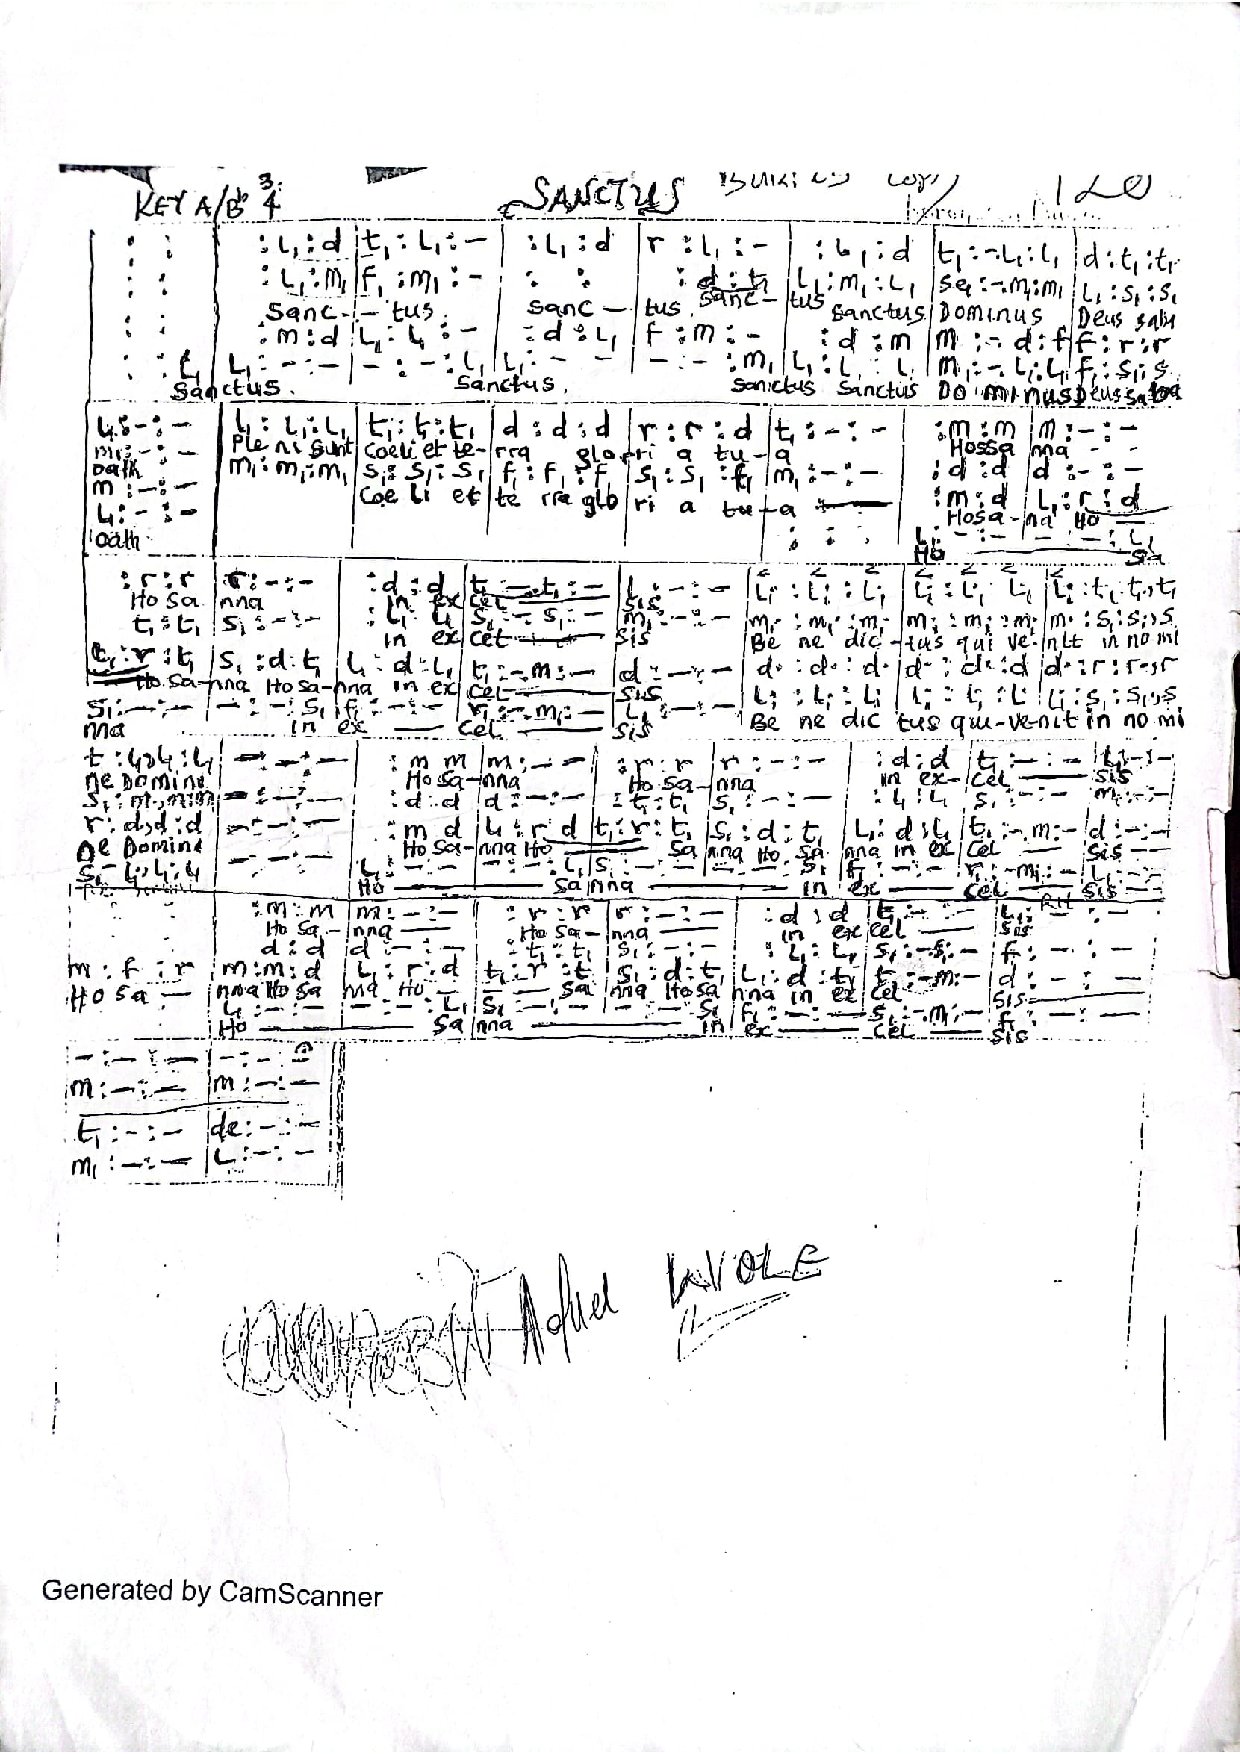 KEY A/Bb 3/4 SANCTUS 120
: : | : l₁ : d | t₁ : l₁ : – | : l₁ : d | r : l₁ : – | : l₁ : d | t₁ : – l₁ : l₁ | d : t₁ : t₁
: : | : l₁ : m₁ | f₁ : m₁ : – | : : | : d : t₁ | l₁ : m₁ : l₁ | se₁ : – m₁ : m₁ | l₁ : s₁ : s₁
Sanc – tus Sanc – tus Sanc – tus Sanctus Dominus Deus saba
: : | : m : d | l₁ : l₁ : – | : d : l₁ | f : m : – | : d : m | m : – d : f | f : r : r
: : l₁ | l₁ : – : – | – : – : l₁ | l₁ : – : – | – : – : m₁ | l₁ : l₁ : l₁ | m₁ : – l₁ : l₁ | f₁ : s₁ : s₁
Sanctus. Sanctus. Sanctus Sanctus Dominus Deus saba
l₁ : – : – | l₁ : l₁ : l₁ | t₁ : t₁ : t₁ | d : d : d | r : r : d | t₁ : – : – | : m : m | m : – : –
m₁ : – : – Pleni sunt coeli et te – rra glo – ri a tu – a Hossa nna
oath m₁ : m₁ : m₁ | s₁ : s₁ : s₁ | f₁ : f₁ : f₁ | s₁ : s₁ : f₁ | m₁ : – : – | : d : d | d : – : –
m : – : – coe li et te rra glo ri a tu – a : m : d | l₁ : r : d
l₁ : – : – Hosa – na Ho
oath : : | l₁ : – : – | – : – : l₁
Ho Sa
: r : r | r : – : – | : d : d | t₁ : – t₁ : – | l₁ : – : – | l₁ : l₁ : l₁ | l₁ : l₁ : l₁ | l₁ : t₁ : t₁, t₁
Ho sa nna in ex cel sis
: t₁ : t₁ | s₁ : – : – | : l₁ : l₁ | s₁ : – s₁ : – | m₁ : – : – | m₁ : m₁ : m₁ | m₁ : m₁ : m₁ | m₁ : s₁ : s₁, s₁
in ex cel sis Be ne dic – tus qui ve – nit in no mi
t₁ : r : t₁ | s₁ : d : t₁ | l₁ : d : l₁ | t₁ : – m : – | d : – : – | d : d : d | d : d : d | d : r : r, r
Ho sa – nna Ho sa – nna in ex cel sis
s₁ : – : – | – : – : s₁ | f₁ : – : – | r₁ : – m₁ : – | l₁ : – : – | l₁ : l₁ : l₁ | l₁ : l₁ : l₁ | l₁ : s₁ : s₁, s₁
nna in ex cel sis Be ne dic tus qui – venit in no mi
t₁ : l₁, l₁ : l₁ | – : – : – | : m : m | m : – : – | : r : r | r : – : – | : d : d | t₁ : – : – | l₁ : – : –
ne Domine Ho sa – nna Ho sa – nna in ex – cel sis
s₁ : m₁, m₁ : m₁ | – : – : – | : d : d | d : – : – | : t₁ : t₁ | s₁ : – : – | : l₁ : l₁ | s₁ : – : – | m₁ : – : –
r : d, d : d | – : – : – | : m : d | l₁ : r : d | t₁ : r : t₁ | s₁ : d : t₁ | l₁ : d : l₁ | t₁ : – m : – | d : – : –
ne Domine Ho sa – nna Ho sa nna Ho sa nna in ex cel sis
s₁ : l₁, l₁ : l₁ | – : – : – | l₁ : – : – | – : – : l₁ | s₁ : – : – | – : – : s₁ | f₁ : – : – | r₁ : – m₁ : – | l₁ : – : –
Ho sa nna in ex cel sis
: : | : m : m | m : – : – | : r : r | r : – : – | : d : d | t₁ : – : – | l₁ : – : –
Ho sa – nna Ho sa – nna in ex cel sis
: d : d | d : – : – | : t₁ : t₁ | s₁ : – : – | : l₁ : l₁ | s₁ : – s₁ : – | f : – : –
m : f : r | m : m : d | l₁ : r : d | t₁ : r : t | s₁ : d : t₁ | l₁ : d : t₁ | t : – m : – | d : – : –
Ho sa – nna Ho sa nna Ho – sa nna Ho sa nna in ex cel sis
l₁ : – : – | – : – : l₁ | s₁ : – : – | – : – : s₁ | f₁ : – : – | s₁ : – m₁ : – | f₁ : – : –
Ho sa nna in ex cel sis
– : – : – | – : – : –
m : – : – | m : – : –
t₁ : – : – | de : – : –
m₁ : – : – | l : – : –
KVOLE
Generated by CamScanner